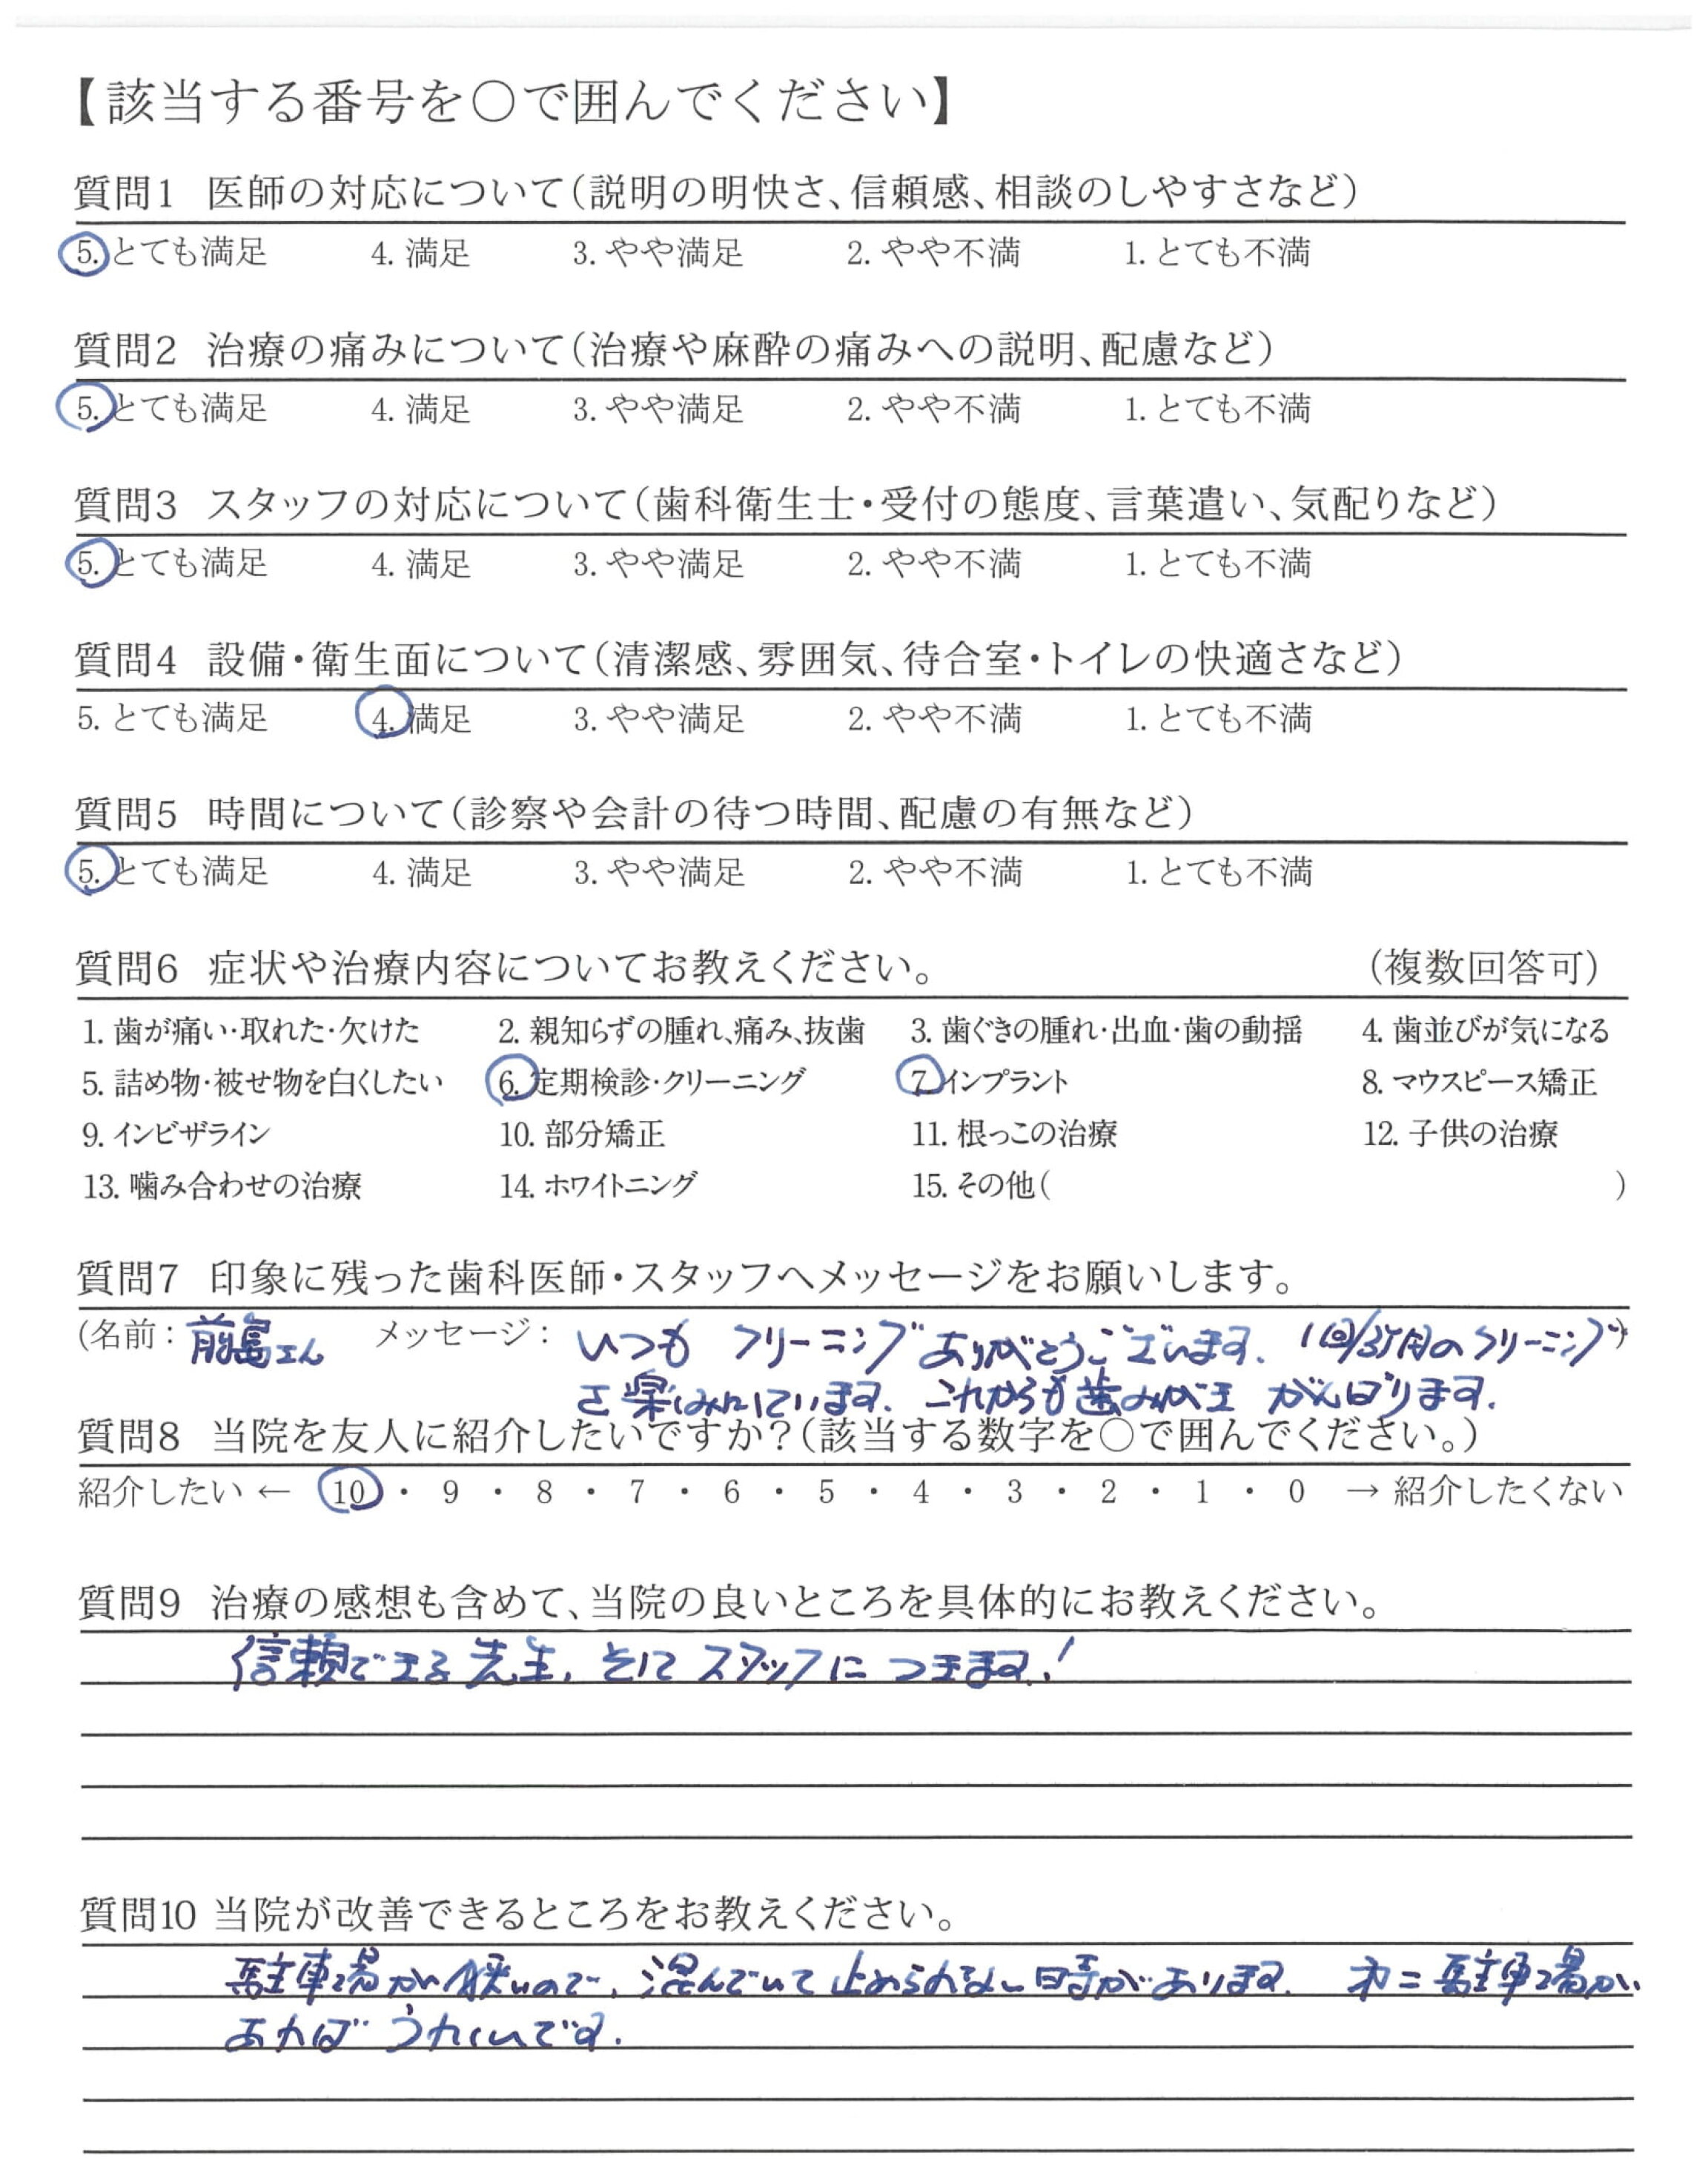 【該当する番号を○で囲んでください】
質問1 医師の対応について(説明の明快さ、信頼感、相談のしやすさなど)
5. とても満足 4. 満足 3. やや満足 2. やや不満 1. とても不満
質問2 治療の痛みについて(治療や麻酔の痛みへの説明、配慮など)
5. とても満足 4. 満足 3. やや満足 2. やや不満 1. とても不満
質問3 スタッフの対応について(歯科衛生士・受付の態度、言葉遣い、気配りなど)
5. とても満足 4. 満足 3. やや満足 2. やや不満 1. とても不満
質問4 設備・衛生面について(清潔感、雰囲気、待合室・トイレの快適さなど)
5. とても満足 4. 満足 3. やや満足 2. やや不満 1. とても不満
質問5 時間について(診察や会計の待つ時間、配慮の有無など)
5. とても満足 4. 満足 3. やや満足 2. やや不満 1. とても不満
質問6 症状や治療内容についてお教えください。 (複数回答可)
1. 歯が痛い・取れた・欠けた 2. 親知らずの腫れ、痛み、抜歯 3. 歯ぐきの腫れ・出血・歯の動揺 4. 歯並びが気になる
5. 詰め物・被せ物を白くしたい 6. 定期検診・クリーニング 7. インプラント 8. マウスピース矯正
9. インビザライン 10. 部分矯正 11. 根っこの治療 12. 子供の治療
13. 噛み合わせの治療 14. ホワイトニング 15. その他( )
質問7 印象に残った歯科医師・スタッフへメッセージをお願いします。
(名前: 前島さん メッセージ: いつも クリーニング ありがとうございます。 1回/3ヶ月のクリーニング)
を楽しみにしています。 これからも歯みがき がんばります。
質問8 当院を友人に紹介したいですか?(該当する数字を○で囲んでください。)
紹介したい ← 10 ・ 9 ・ 8 ・ 7 ・ 6 ・ 5 ・ 4 ・ 3 ・ 2 ・ 1 ・ 0 → 紹介したくない
質問9 治療の感想も含めて、当院の良いところを具体的にお教えください。
信頼できる 先生、そして スタッフに つきます!
質問10 当院が改善できるところをお教えください。
駐車場が狭いので、混んでいて止められない時があります。 第二駐車場が
あれば うれしいです。